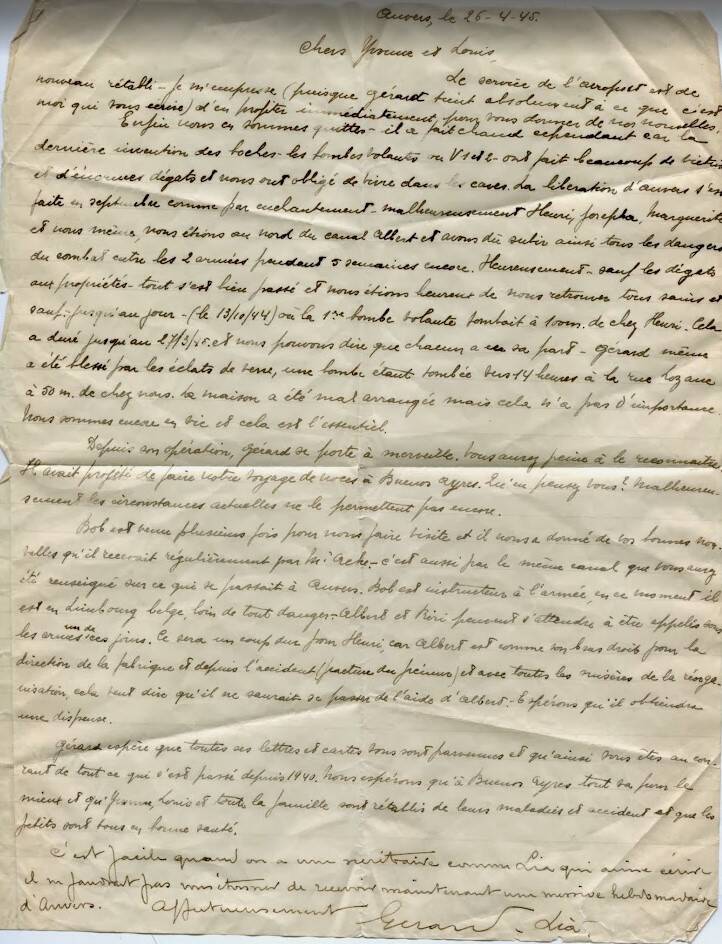 Anvers, le 26-4-45.
Chers Yvonne et Louis,
Le service de l'aeropost est de
nouveau rétabli - Je m'empresse (puisque gérard tient absolument à ce que c'est
moi qui vous écrive) d'en profiter immédiatement, pour vous donner de nos nouvelles.
Enfin nous en sommes quittes - il a fait chaud cependant car la
dernière invention des boches - les bombes volantes ou V1 et 2 - ont fait beaucoup de victimes
et d'énormes dégats et nous ont obligé de vivre dans les caves. La libération d'anvers s'est
faite en septembre comme par enchantement - malheureusement Henri, Josepha, Marguerite
et nous même, nous étions au nord du canal Albert et avons dû subir ainsi tous les dangers
du combat entre les 2 armées pendant 5 semaines encore. Heureusement - sauf les dégats
aux propriétés - tout s'est bien passé et nous étions heureux de nous retrouver tous sains et
sauf - jusqu'au jour - (le 13/10/44) où la 1re bombe volante tombait à 100m. de chez Henri. Cela
a duré jusqu'au 27/3/45 et nous pouvons dire que chacun a eu sa part - Gérard même
a été blessé par les éclats de verre, une bombe étant tombée vers 14 heures à la rue Lozane
à 50 m. de chez nous. La maison a été mal arrangée mais cela n'a pas d'importance.
Nous sommes encore en vie et cela est l'essentiel.
Depuis son opération, Gérard se porte à merveille. Vous aurez peine à le reconnaitre
avait profité de faire notre voyage de noces à Buenos Ayres. Qu'en pensez vous? Malheureu-
sement les circonstances actuelles ne le permettent pas encore.
Bob est venu plusieurs fois pour nous faire visite et il nous a donné de vos bonnes nou-
velles qu'il recevait régulièrement par - c'est aussi par le même canal que vous aurez
été renseigné sur ce qui se passait à Anvers. Bob est instructeur à l'armée, en ce moment il
est en Limbourg belge, loin de tout danger - Albert et Riri peuvent s'attendre à être appelés sous
les armes un de ces jours. Ce sera un coup dur pour Henri, car Albert est comme son bras droit pour la
direction de la fabrique et depuis l'accident (fracture du fémur) et avec toutes les misères de la réorga-
nisation, cela veut dire qu'il ne saurait se passer de l'aide d'Albert - Espérons qu'il obtiendra
une dispense.
Gérard espère que toutes ses lettres et cartes vous sont parvenues et qu'ainsi vous êtes au cou-
rant de tout ce qui s'est passé depuis 1940. Nous espérons qu'à Buenos Ayres tout va pour le
mieux et qu'Yvonne, Louis et toute la famille sont rétablis de leurs maladies et accident et que les
petits sont tous en bonne santé.
C'est facile quand on a une secrétaire comme Lia qui aime écrire
il ne faudrait pas vous étonner de recevoir maintenant une missive hebdomadaire
d'Anvers. Affectueusement Gerard - Lia.